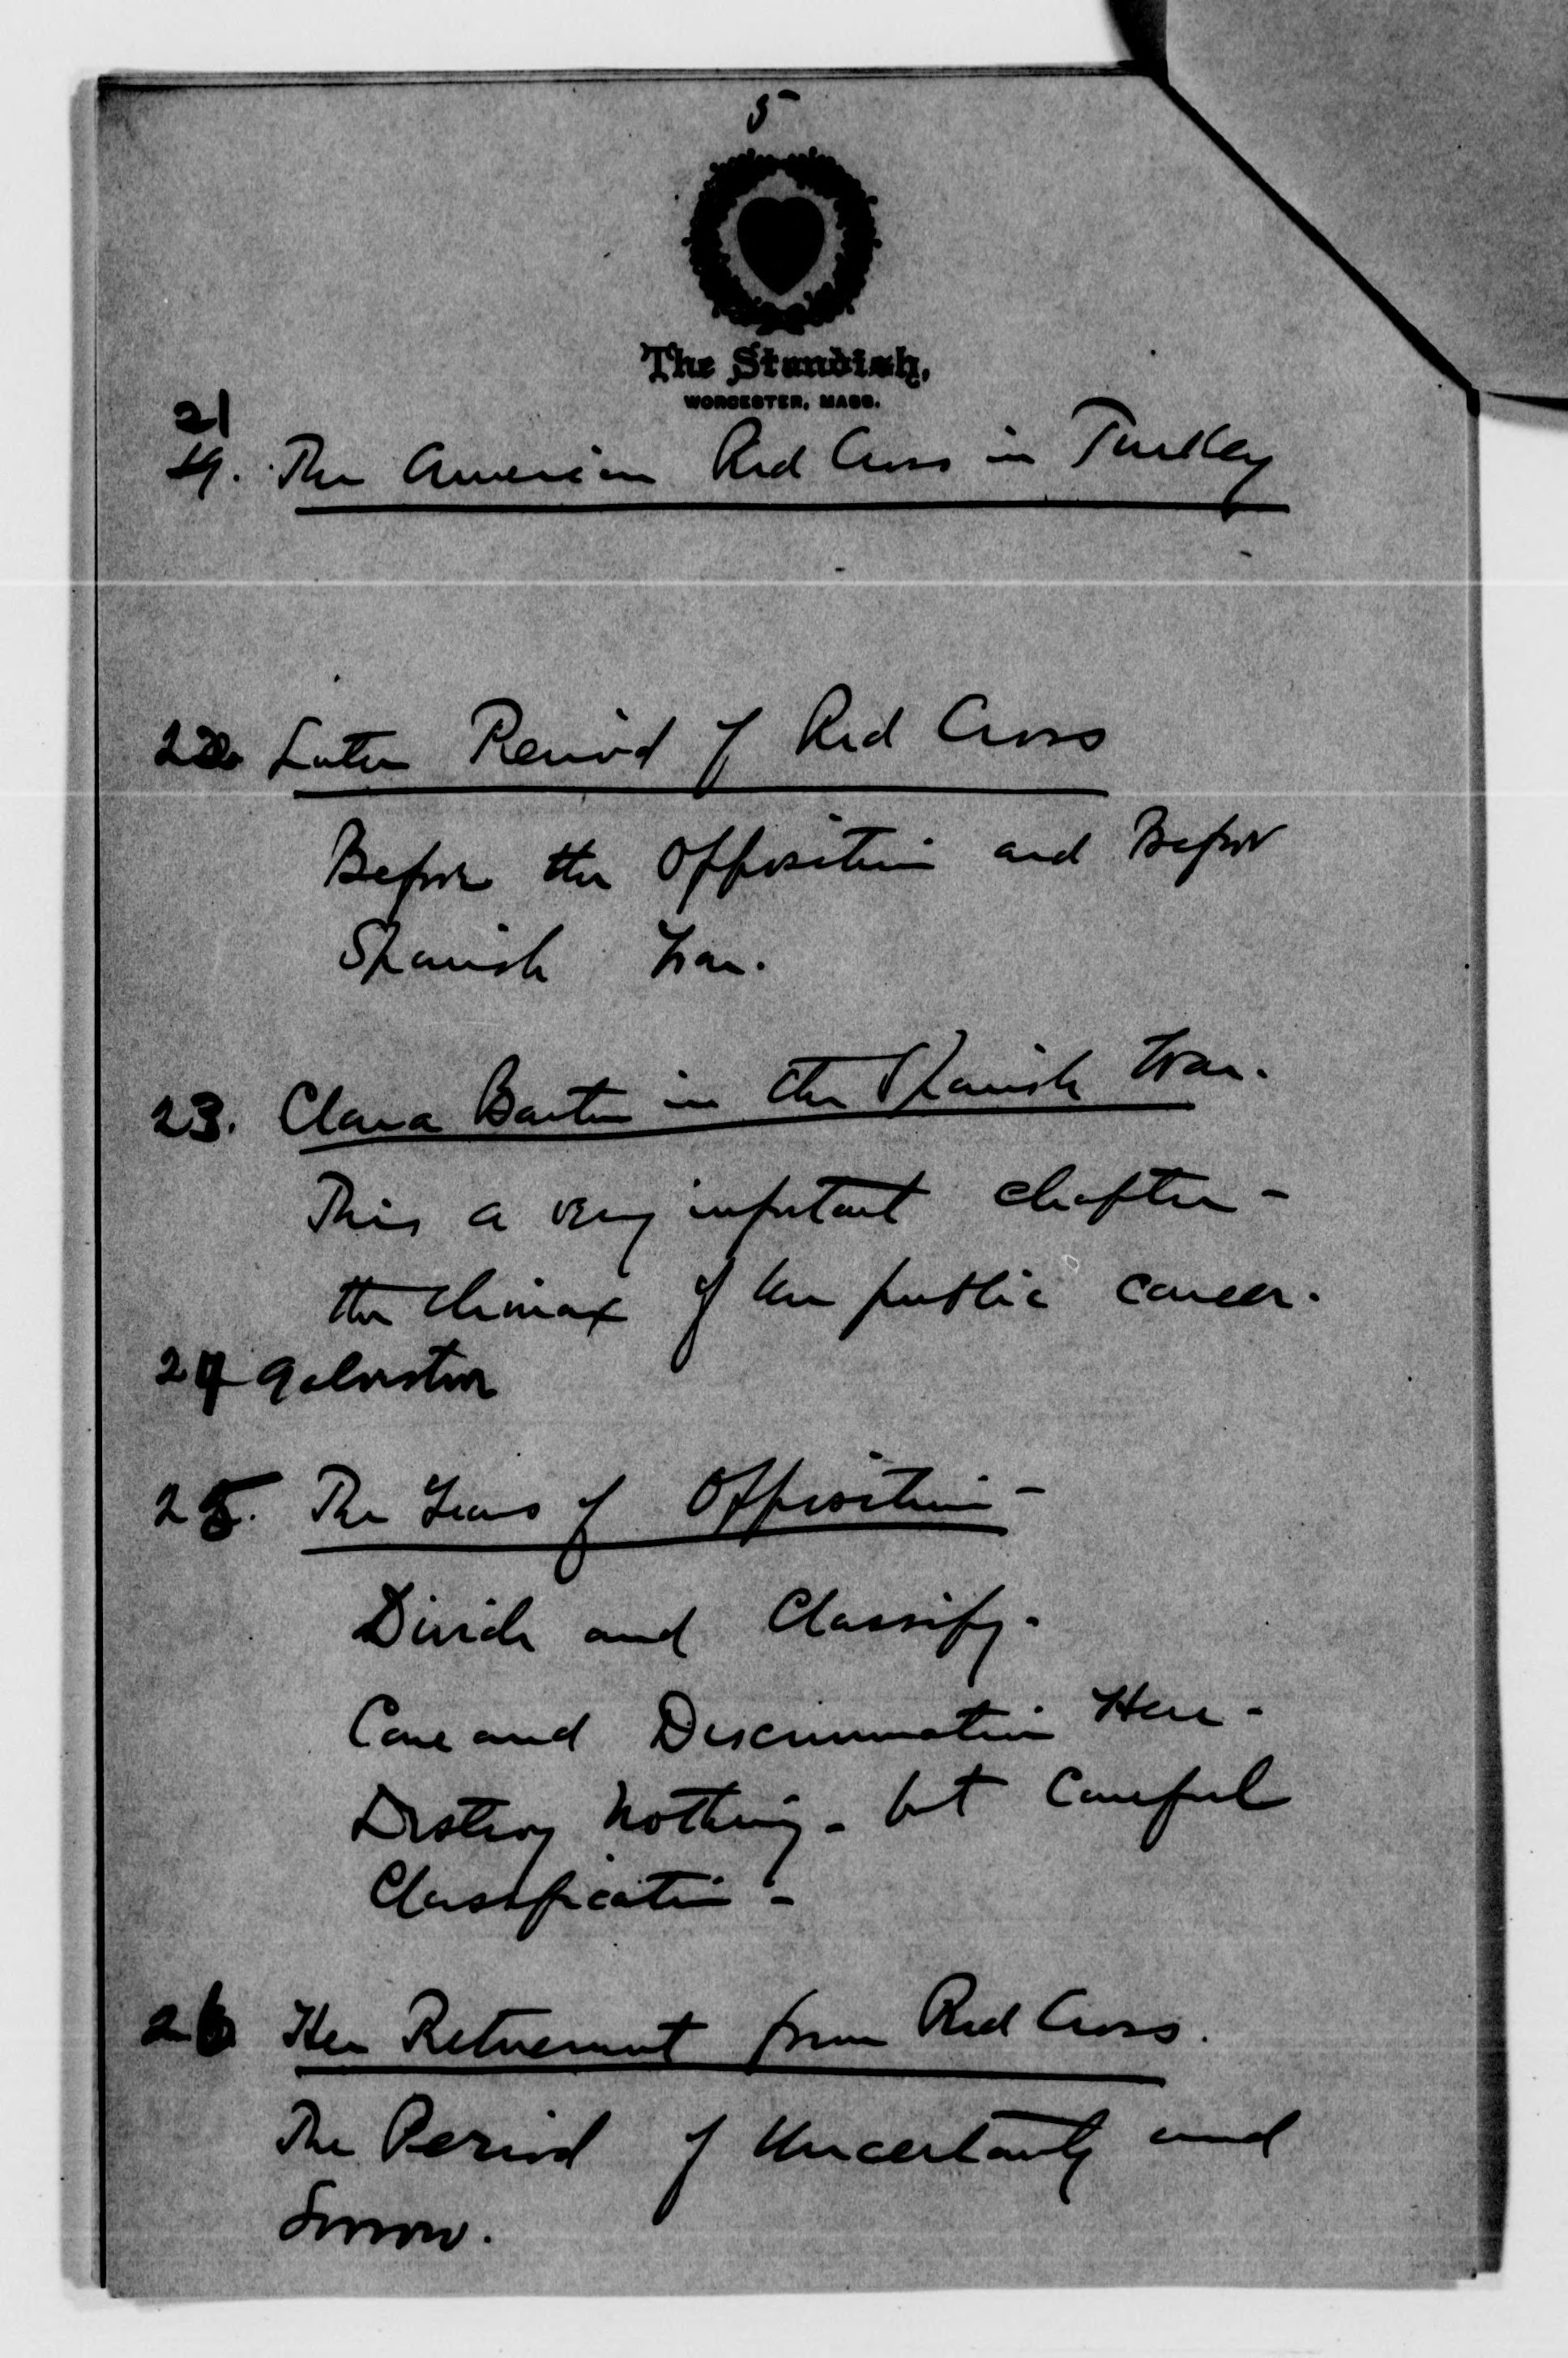 5
The Standish,
WORCESTER, MASS.
21
19. The American Red Cross in Turkey
22 Later Period of Red Cross
Before the Opposition and Before
Spanish War.
23. Clara Barton in the Spanish War.
This a very important chapter -
the climax of her public career.
24 Galveston
25. The Years of Opposition -
Divide and Classify.
Care and Discrimination Here -
Destroy nothing - but Careful
Classification -
26 Her Retirement from Red Cross.
The Period of Uncertainty and
Sorrow.